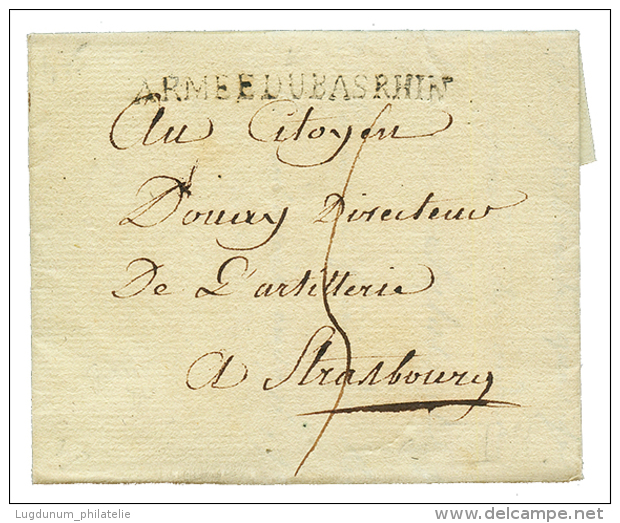 ARMEE DU BAS RHIN
Au Citoyen
Douay Directeur
De L'artillerie
a Strasbourg
5
Lugdunum_philatelie
delcampe.net